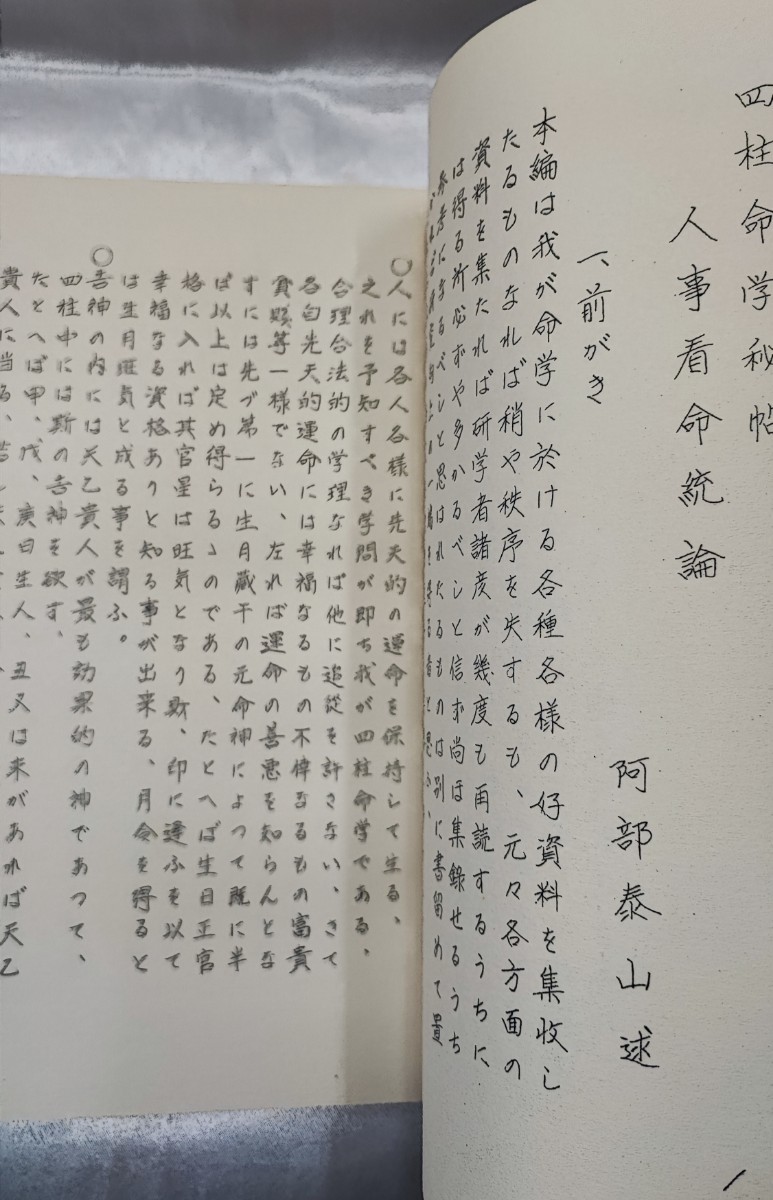 四柱命学秘帖
人事看命統論
阿部泰山述
一、前がき
本編は我が命学に於ける各種各様の好資料を集收し
たるものなれば稍や秩序を失するも、元々各方面の
資料を集たれば研学者諸彦が幾度も再読するうちに、
は得る所必ずや多かるべしと信ず尚ほ集録せるうち
参考になるべしと思はれたるものは別に書留めて貴
〇人には各人各様に先天的の運命を保持して生る、
之れを予知すべき学問が即ち我が四柱命学である、
合理合法的の学理なれば他に追従を許さない、さて
各自先天的運命には幸福なるもの不倖なるもの富貴
貧賎等一様でない、左れば運命の善悪を知らんとな
すには先づ第一に生月蔵干の元命神によつて既に半
ば以上は定め得らるゝのである、たとへば生日正官
格に入れば其官星は旺気となり財、印に逢ふを以て
幸福なる資格ありと知る事が出来る、月令を得ると
は生月旺気と成る事を謂ふ。
〇吉神の内には天乙貴人が最も効果的の神であつて、
四柱中には斯の吉神を欲す、
たとへば甲、戊、庚日生人、丑又は未があれば天乙
貴人に当る、
1